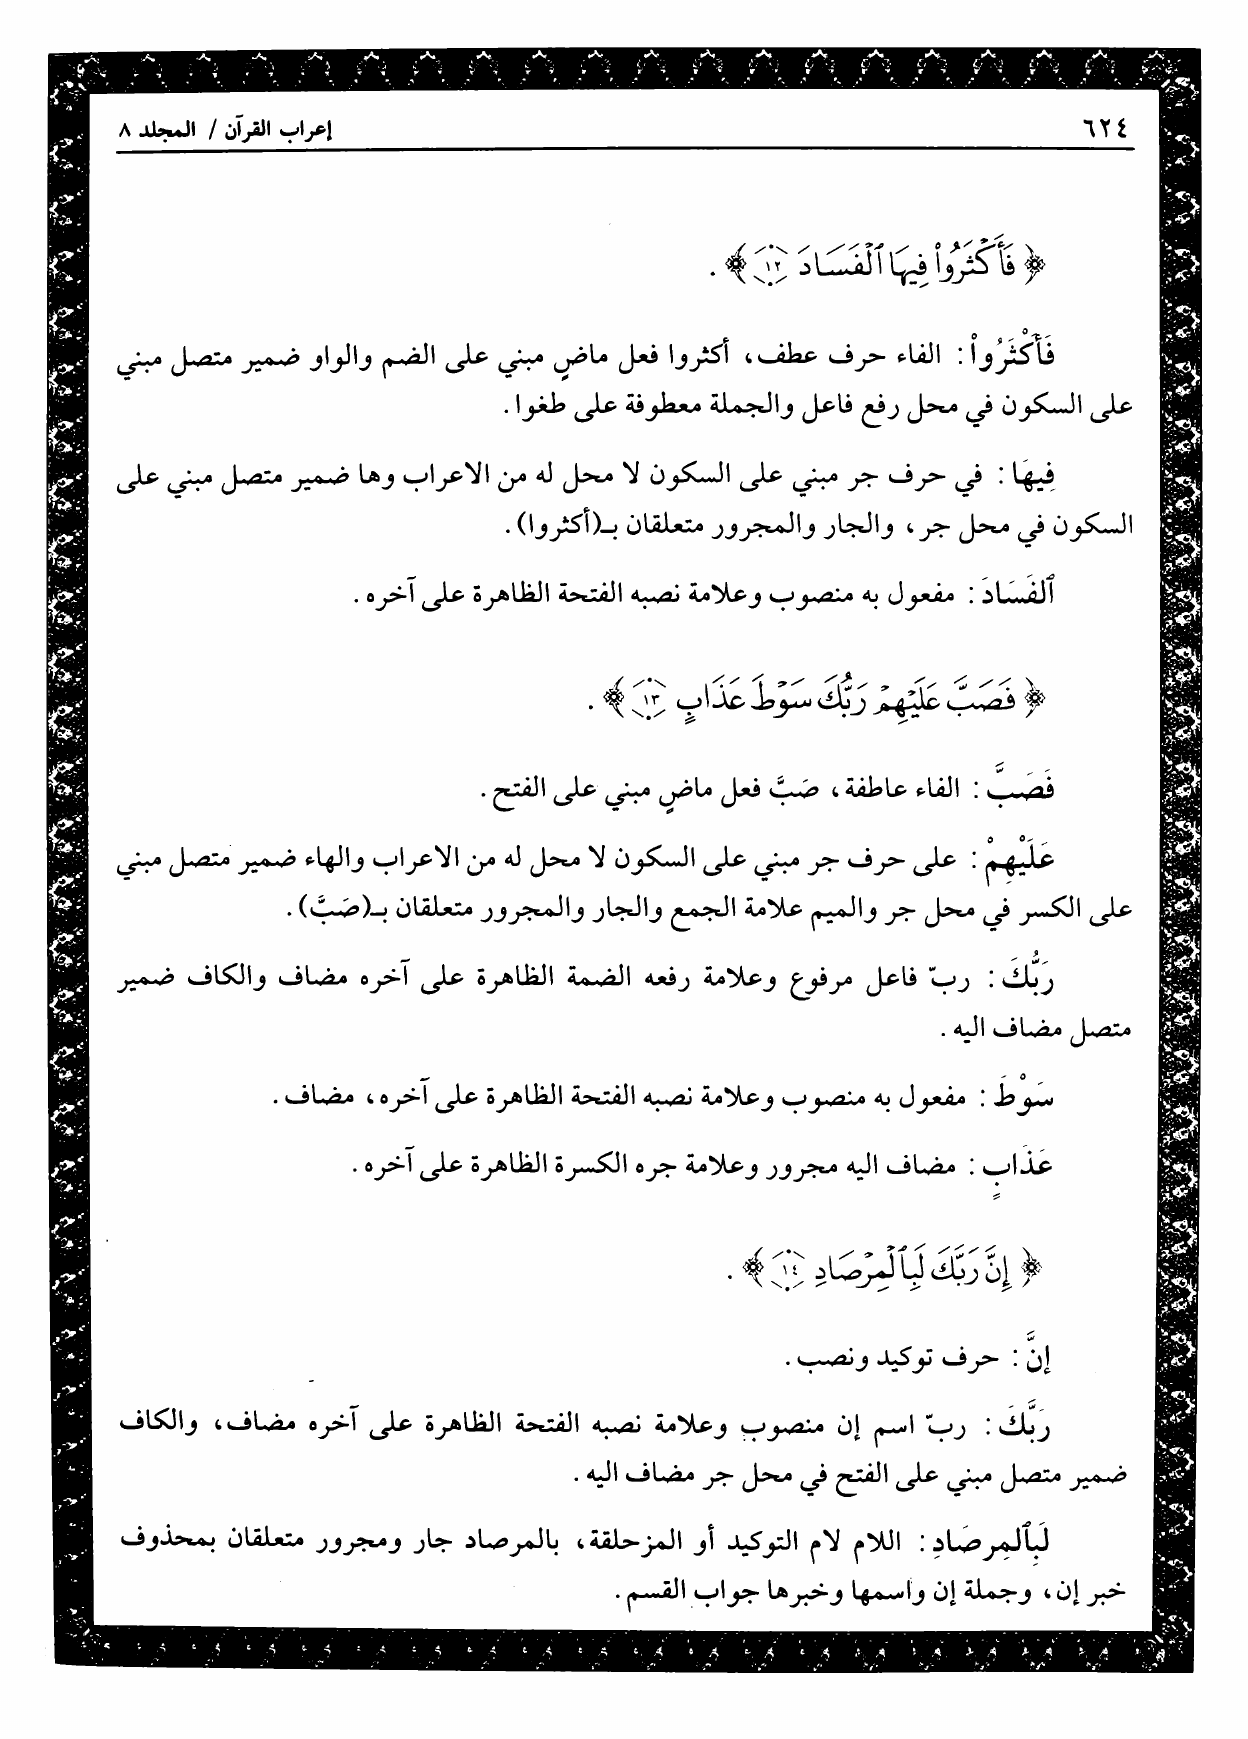 ٦٢٤
إعراب القرآن / المجلد ٨
﴿ فَأَكْثَرُوا۟ فِيهَا ٱلْفَسَادَ ١٢ ﴾ .
فَأَكْثَرُوا۟ : الفاء حرف عطف، أكثروا فعل ماضٍ مبني على الضم والواو ضمير متصل مبني
على السكون في محل رفع فاعل والجملة معطوفة على طغوا.
فِيهَا : في حرف جر مبني على السكون لا محل له من الاعراب وها ضمير متصل مبني على
السكون في محل جر، والجار والمجرور متعلقان بـ(أكثروا).
ٱلفَسَادَ : مفعول به منصوب وعلامة نصبه الفتحة الظاهرة على آخره.
﴿ فَصَبَّ عَلَيْهِمْ رَبُّكَ سَوْطَ عَذَابٍ ١٣ ﴾ .
فَصَبَّ : الفاء عاطفة، صَبَّ فعل ماضٍ مبني على الفتح.
عَلَيْهِمْ : على حرف جر مبني على السكون لا محل له من الاعراب والهاء ضمير متصل مبني
على الكسر في محل جر والميم علامة الجمع والجار والمجرور متعلقان بـ(صَبَّ).
رَبُّكَ : ربّ فاعل مرفوع وعلامة رفعه الضمة الظاهرة على آخره مضاف والكاف ضمير
متصل مضاف اليه.
سَوْطَ : مفعول به منصوب وعلامة نصبه الفتحة الظاهرة على آخره، مضاف.
عَذَابٍ : مضاف اليه مجرور وعلامة جره الكسرة الظاهرة على آخره.
﴿ إِنَّ رَبَّكَ لَبِٱلْمِرْصَادِ ١٤ ﴾ .
إنَّ : حرف توكيد ونصب.
رَبَّكَ : ربّ اسم إن منصوب وعلامة نصبه الفتحة الظاهرة على آخره مضاف، والكاف
ضمير متصل مبني على الفتح في محل جر مضاف اليه.
لَبِٱلمِرصَادِ : اللام لام التوكيد أو المزحلقة، بالمرصاد جار ومجرور متعلقان بمحذوف
خبر إن، وجملة إن واسمها وخبرها جواب القسم.